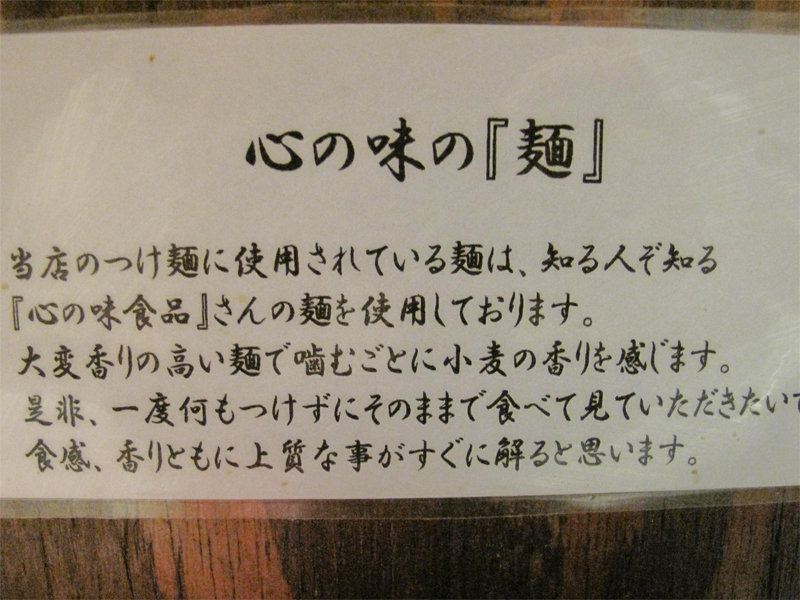 心の味の『麺』
当店のつけ麺に使用されている麺は、知る人ぞ知る
『心の味食品』さんの麺を使用しております。
大変香りの高い麺で噛むごとに小麦の香りを感じます。
是非、一度何もつけずにそのままで食べて見ていただきたいで
食感、香りともに上質な事がすぐに解ると思います。